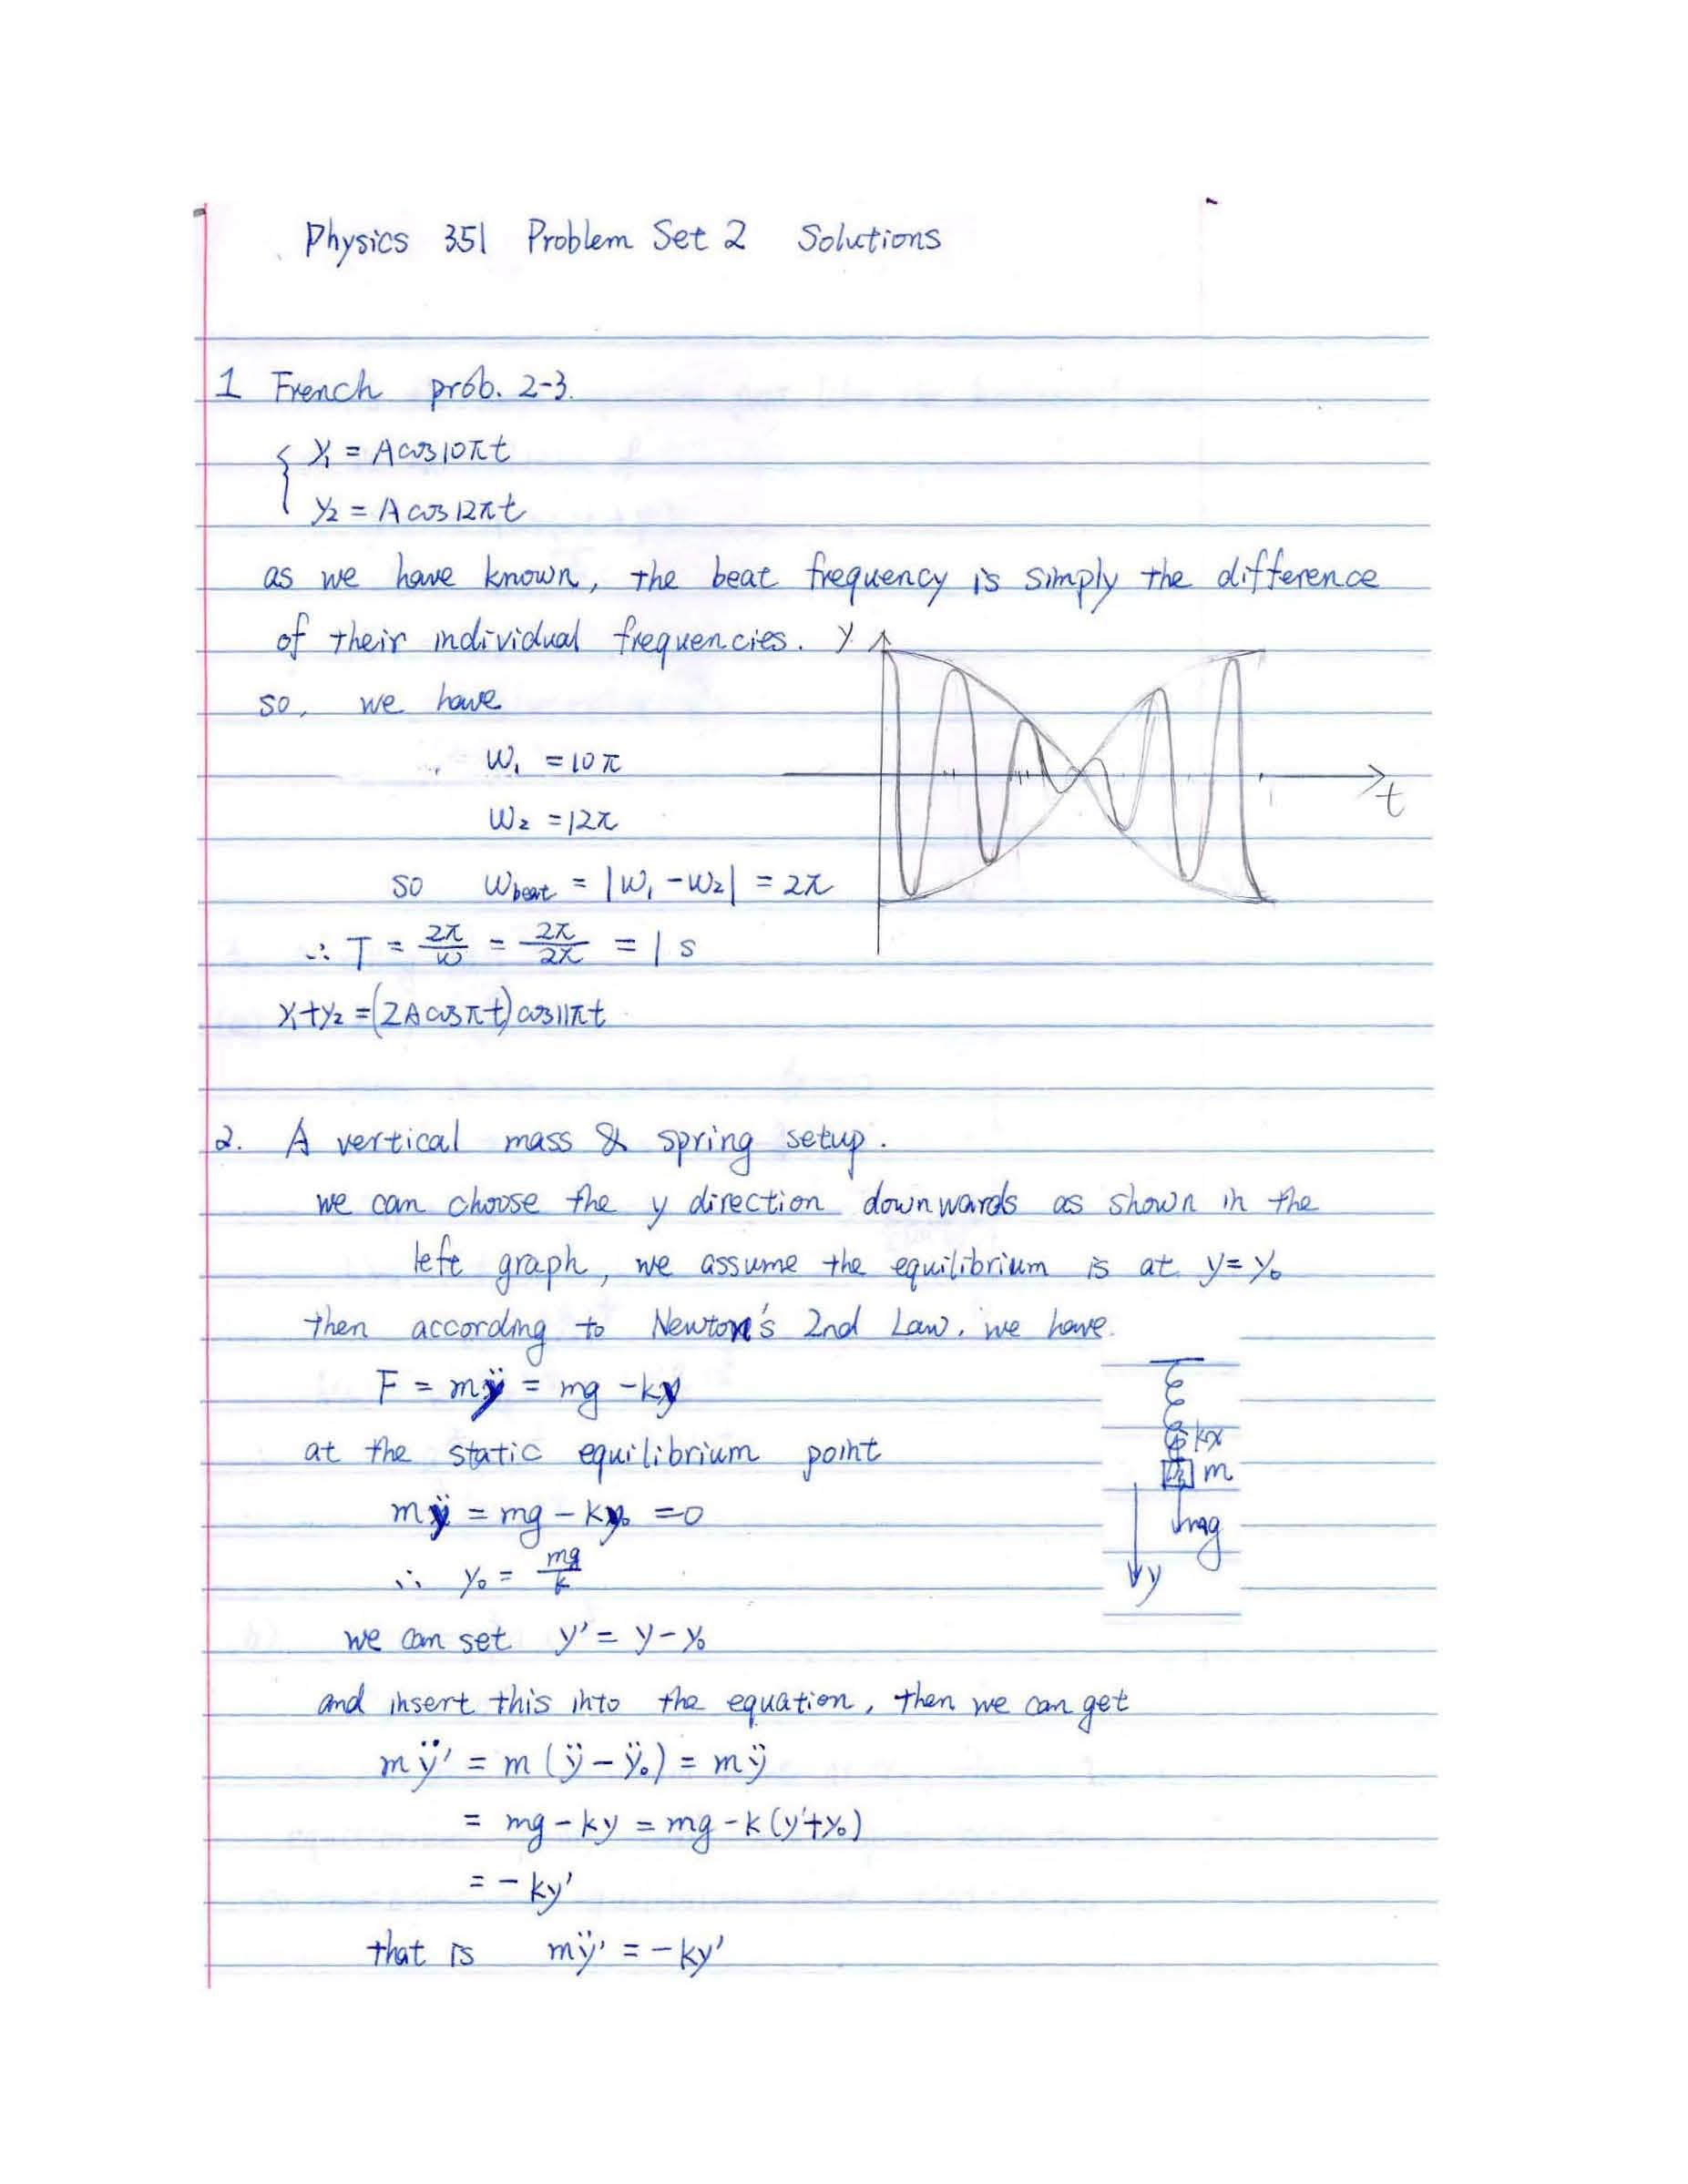 Physics 351 Problem Set 2 Solutions
1 French prob. 2-3.
{ y₁ = A cos10πt
y₂ = A cos12πt
as we have known, the beat frequency is simply the difference
of their individual frequencies.
y
so, we have
t
ω₁ = 10π
ω₂ = 12π
so ωbeat = |ω₁ - ω₂| = 2π
∴ T = 2π/ω = 2π/2π = 1 s
y₁+y₂ = (2A cosπt) cos11πt
2. A vertical mass & spring setup.
we can choose the y direction downwards as shown in the
left graph, we assume the equilibrium is at y = y₀
then according to Newton's 2nd Law, we have.
F = mÿ = mg - ky
at the static equilibrium point
kx
m
mÿ = mg - ky₀ = 0
mg
∴ y₀ = mg/k
y
we can set y' = y - y₀
and insert this into the equation, then we can get
mÿ' = m (ÿ - ÿ₀) = mÿ
= mg - ky = mg - k (y'+y₀)
= - ky'
that is mÿ' = - ky'